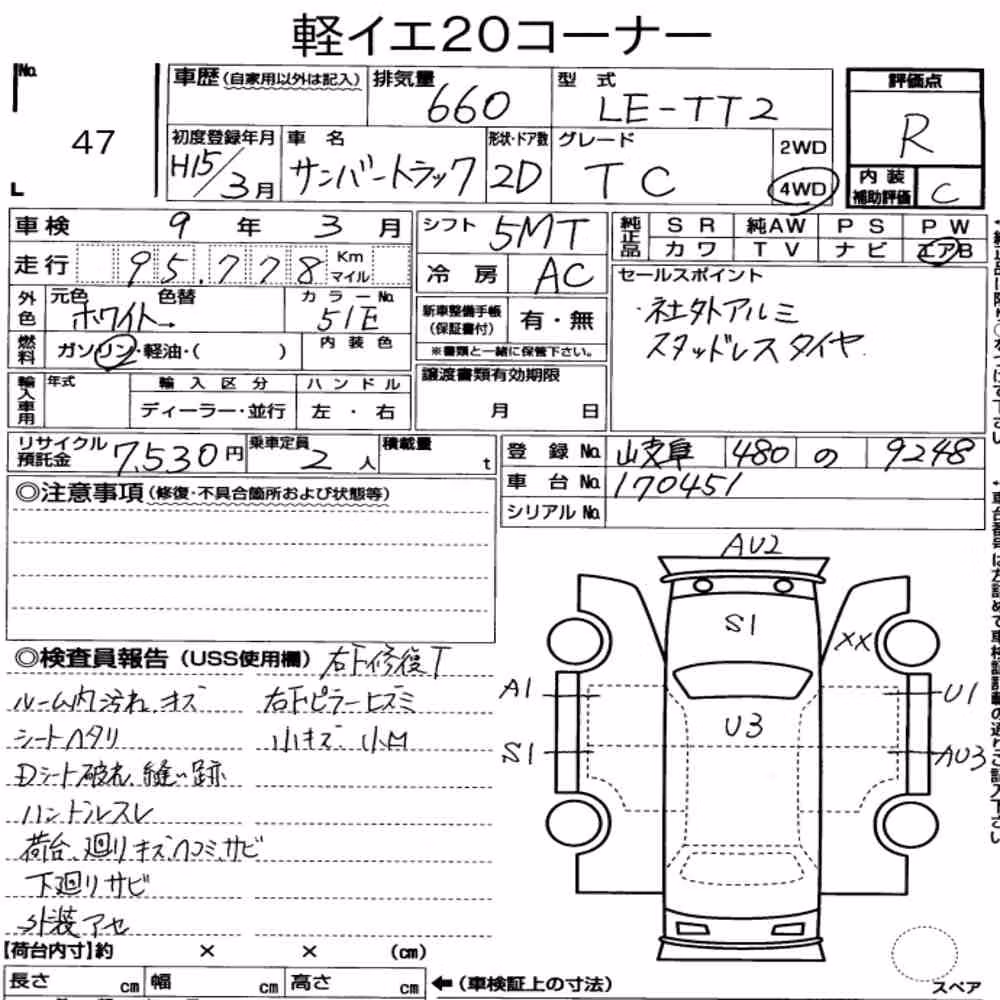 軽イエ20コーナー
No. 47
車歴(自家用以外は記入) 排気量 660 型式 LE-TT2 評価点 R
初度登録年月 H15/3月 車名 サンバートラック 形状・ドア数 2D グレード TC 2WD 4WD 内装補助評価 C
車検 9年 3月 シフト 5MT 純正品 SR 純AW PS PW
走行 95,778 Km マイル 冷房 AC カワ TV ナビ エアB
外色 元色 ホワイト→ 色替 カラーNo. 51E 新車整備手帳(保証書付) 有・無 セールスポイント
・社外アルミ
スタッドレスタイヤ
燃料 ガソリン・軽油・( ) 内装色 ※書類と一緒に保管下さい。
輸入車用 年式 輸入区分 ハンドル 譲渡書類有効期限
ディーラー・並行 左・右 月 日
リサイクル預託金 7,530円 乗車定員 2人 積載量 t 登録No. 岐阜 480 の 9248
車台No. 170451
シリアルNo.
◎注意事項(修復・不具合箇所および状態等)
◎検査員報告(USS使用欄) 右下修復T
ルーム内汚れ、キズ 右下ピラーヒズミ
シートヘタリ 小キズ、小凹
Dシート破れ、縫い跡
ハンドルスレ
荷台、廻りキズ、ヘコミ、サビ
下廻りサビ
外装アセ
AU2
S1
XX
A1 U1
U3
S1 AU3
【荷台内寸】約 × × (cm)
長さ cm 幅 cm 高さ cm ←(車検証上の寸法)
スペア